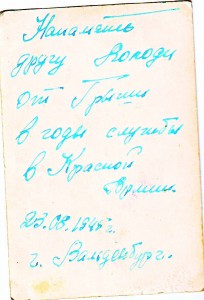 На память
другу Володи
от Гриши
в годы службы
в Красной
Армии.
23.08.1945 г.
г. Вальденбург.